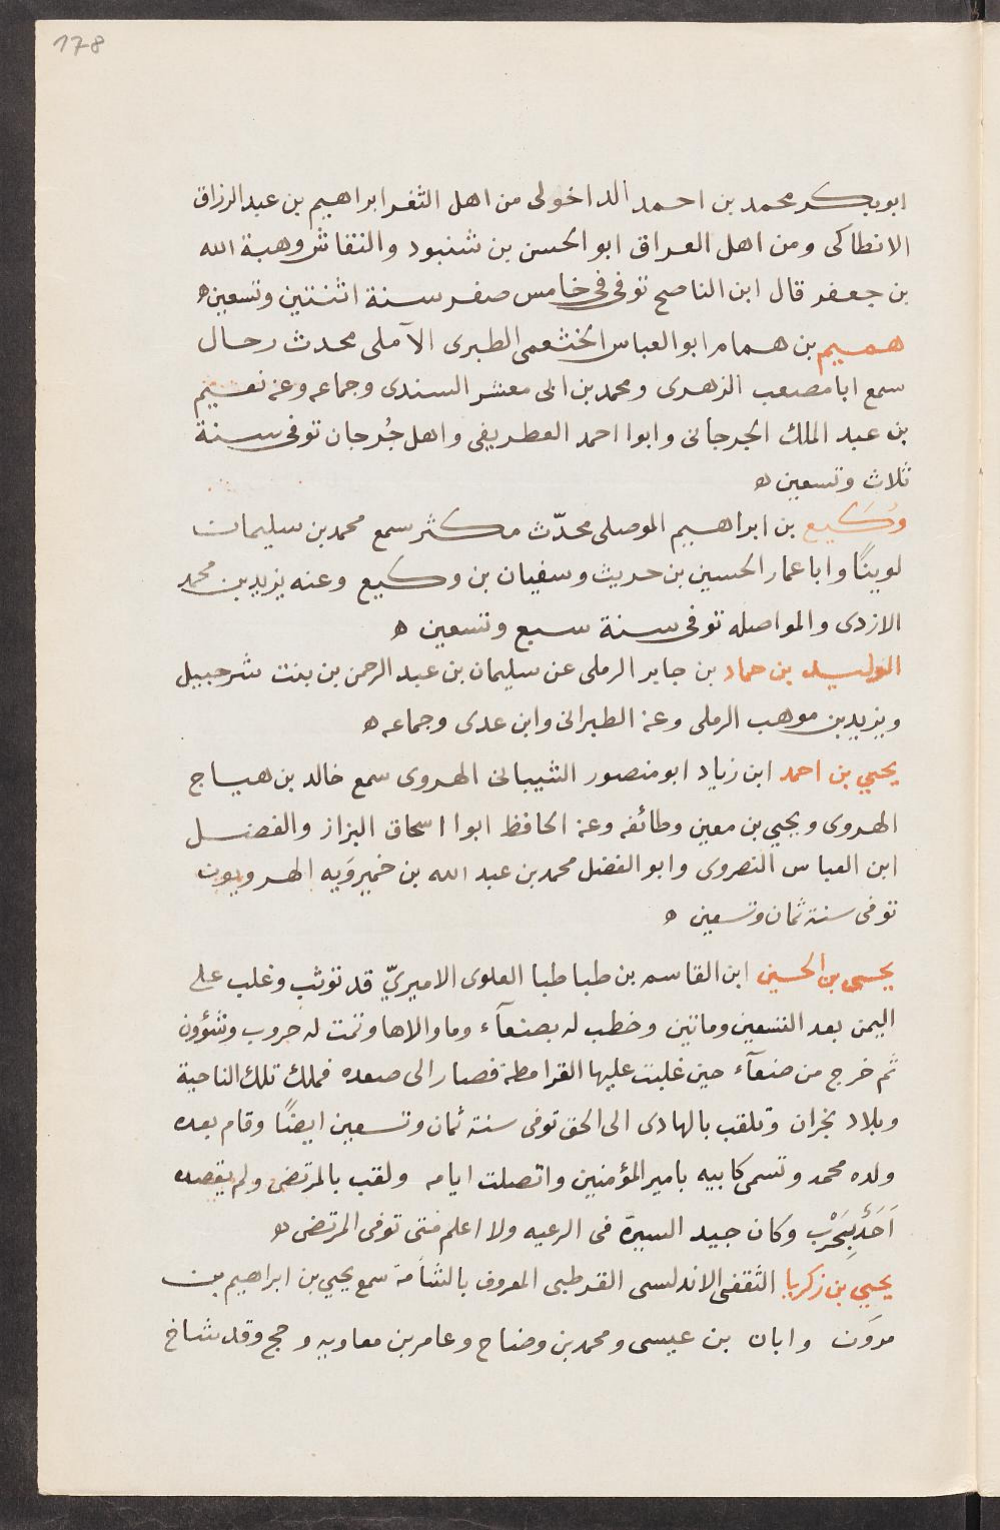 178
ابوبكر محمد بن احمد الداخولى من اهل الثغر ابراهيم بن عبد الرزاق
الانطاكى ومن اهل العراق ابو الحسن بن شنبود والنقاش وهبة الله
بن جعفر قال ابن الناصح توفى فى خامس صفر سنة اثنتين وتسعين ه
هميم بن همام ابو العباس الخثعمى الطبرى الآملى محدث رحال
سمع ابا مصعب الزهرى ومحمد بن ابى معشر السندى وجماعه وعنه نعيم
بن عبد الملك الجرجانى وابوا احمد الغطريفى واهل جُرجان توفى سنة
ثلاث وتسعين ه
وَكَيع بن ابراهيم الموصلى محدّث مكثر سمع محمد بن سليمان
لوينًا وابا عمار الحسين بن حريث وسفيان بن وكيع وعنه يزيد بن محمد
الازدى والمواصله توفى سنة سبع وتسعين ه
الوليد بن حماد بن جابر الرملى عن سليمان بن عبد الرحمن بن بنت شرحبيل
ويزيد بن موهب الرملى وعنه الطبرانى وابن عدى وجماعه ه
يحيي بن احمد ابن زياد ابو منصور الشيبانى الهروى سمع خالد بن هياج
الهروى ويحيي بن معين وطائفه وعنه الحافظ ابوا اسحاق البزاز والفضل
ابن العباس النصروى وابو الفضل محمد بن عبد الله بن خميروَيه الهرويون
توفى سنة ثمان وتسعين ه
يحيى بن الحسين ابن القاسم بن طباطبا العلوى الاميريّ قد توثب وغلب على
اليمن بعد التسعين ومائتين وخطب له بصنعآء وما والاها وتمت له حروب وشؤون
ثم خرج من صنعآء حين غلبت عليها القرامطة فصار الى صعده فملك تلك الناحية
وبلاد نجران وتلقب بالهادى الى الحق توفى سنة ثمان وتسعين ايضًا وقام بعده
ولده محمد وتسمى كابيه بامير المؤمنين واتصلت ايامه ولقب بالمرتضى ولم يقصده
اَحَدٌ بِحَرْبٍ وكان جيد السيرة فى الرعيه ولا اعلم متى توفى المرتضى ه
يحيي بن زكريا الثقفى الاندلسى القرطبى المعروف بالشامة سمع يحيي بن ابراهيم بن
مروَن وابان بن عيسى ومحمد بن وضاح وعامر بن معاويه وحج وقد شاخ